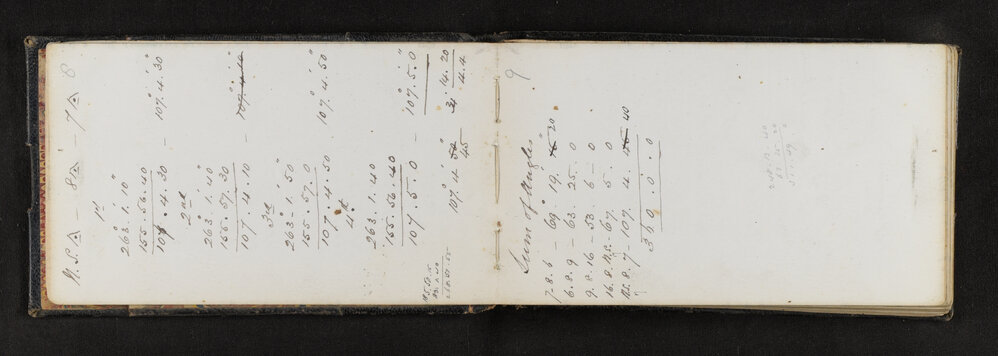 8
N.S. △ — 8 △ — 7 △
1st
263° . 1' . 10"
155 . 56 . 40
107 . 4 . 30 — 107° . 4' . 30"
2nd
263° . 1' . 40"
155 . 57 . 30
107 . 4 . 10 — 107 . 4 . 10
3rd
263° - 1' . 50"
155 . 57 . 0
107 . 4 . 50 107° . 4' . 50"
4th
263° . 1' . 40"
155 . 56 . 40
107 . 5 . 0 — 107° . 5' . 0"
107° . 4' 50" 3) 14 . 20
45 4 . 4
9
Sum of Angles
7 . 8 . 6 — 69° . 19' . 15" 20
6 . 8 . 9 — 63 . 25 . 0
9 . 8 . 16 — 53 . 6 — 0
16 . 8 . N.S. — 67 . 5 . 0
N.S. 8 . 7 — 107 . 4 . 45 40
360 . 0 . 0